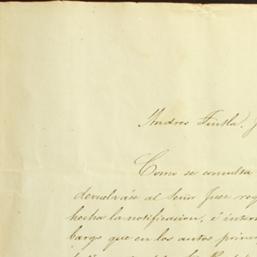 Andres Tuxtla. J
Como se consulta
devuélvase al Señor Juez reg
hecha la notificacion, é inter
bargo que en los autos princi